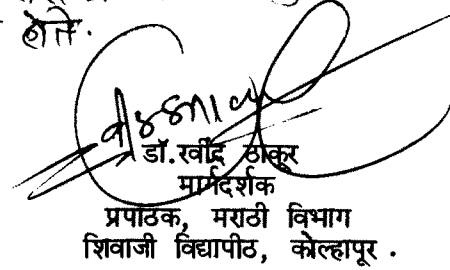 होते.
डॉ.रवींद्र ठाकूर
मार्गदर्शक
प्रपाठक, मराठी विभाग
शिवाजी विद्यापीठ, कोल्हापूर .